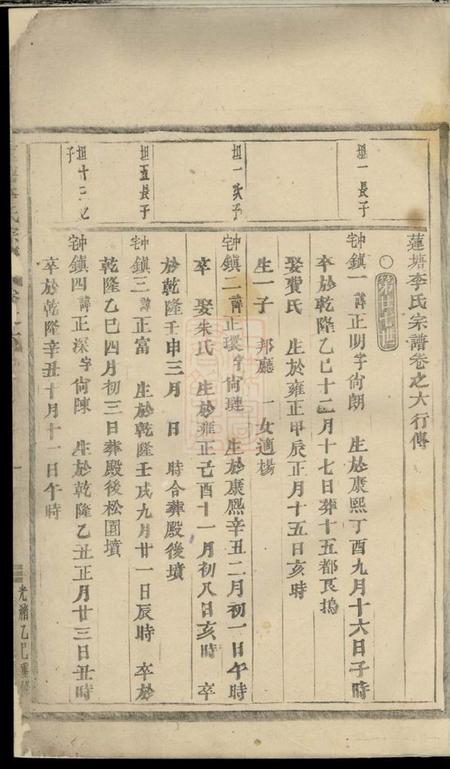 蓮塘李氏宗譜卷之六行傳
坦一長子
鈡鎮一 諱正明字尙朗 生於康熙丁酉九月十六日子時
卒於乾隆乙巳十二月十七日葬十五都艮塢
娶費氏 生於雍正甲辰正月十五日亥時
生一子 邦廳 一女適楊
坦一次子
鈡鎮二 諱正環字尙璉 生於康熙辛丑二月初一日午時
卒 娶朱氏 生於雍正己酉十一月初八日亥時 卒
於乾隆壬申三月 日 時合葬殿後墳
坦五長子
鈡鎮三 諱正富 生於乾隆壬戌九月廿一日辰時 卒於
乾隆乙巳四月初三日葬殿後松園墳
坦十三長子
鈡鎮四 諱正深字尙陳 生於乾隆乙丑正月廿三日丑時
卒於乾隆辛丑十月十一日午時
光緒乙巳重修